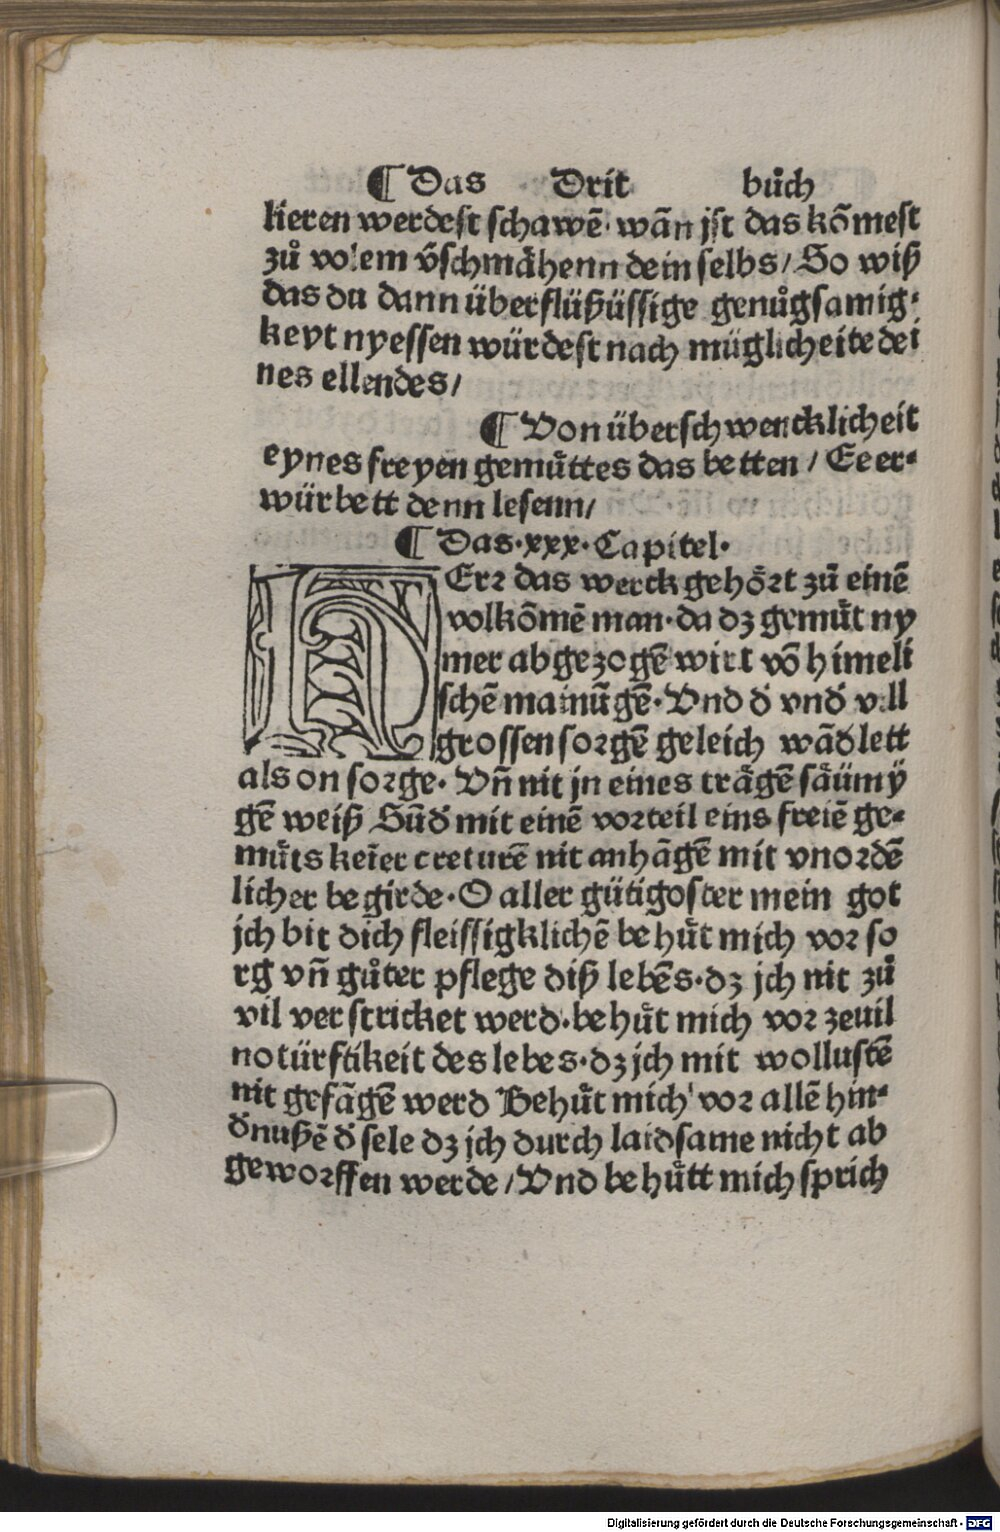 ¶ Das Drit bůch
lieren werdest schawē· wān jst das kōmest
zů volem v̄schmåhenn dein selbs/ So wiß
das du dann überflüßüssige genůgsamig⸗
keyt nyessen würdest nach müglicheite dei
nes ellendes/
¶ Von überschwencklicheit
eynes freyen gemůttes das betten / Ee er⸗
würbett denn lesenn/
¶ Das·xxx·Capitel·
HErr das werck gehört zů einē
volkōmē man·da dz gemůt ny
mer abgezogē wirt vō himeli
schē mainūgē· Vnd d̄ vnd̄ vill
grossen sorgē geleich wād̄lett
als on sorge· Vn̄ nit jn eines trågē såümÿ
gē weiß Sūd̄ mit einē vorteil eins freiē ge⸗
můts keīer creturē nit anhāgē mit vnordē
licher begirde· O aller gütigoster mein got
jch bit dich fleissigklichē behůt mich vor so
rg vn̄ gůter pflege diß lebēs·dz jch nit zů
vil verstricket werd·behůt mich vor zeuil
notürftikeit des lebes·dz jch mit wollustē
nit gefāgē werd Behůt mich vor allē hin⸗
d̄nußē d̄ sele dz jch durch laidsame nicht ab
geworffen werde / Vnd behůtt mich sprich
Digitalisierung gefördert durch die Deutsche Forschungsgemeinschaft - DFG